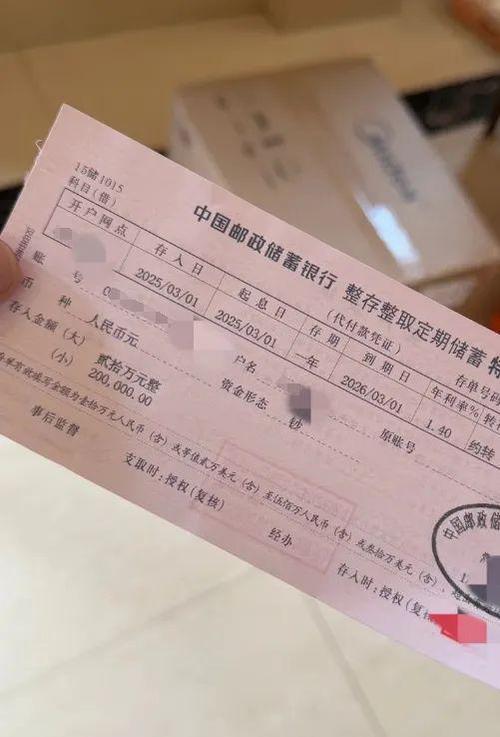 15储1015
科目(借)
中国邮政储蓄银行 整存整取定期储蓄特
(代付款凭证)
开户网点 存入日 起息日 存期 到期日 年利率% 转
2025/03/01 2025/03/01 一年 2026/03/01 1.40 约转
账号 户名 原账号 存单号码
币种 人民币元 资金形态 钞
存入金额(大) 贰拾万元整
(小) 200,000.00
金额为叁拾万元人民币(含)或等值贰万美元(含)至伍佰万人民币(含)或叁拾万美元(含),
事后监督 支取时:授权(复核) 经办 存入时:授权(复核
中国邮政储
Midea